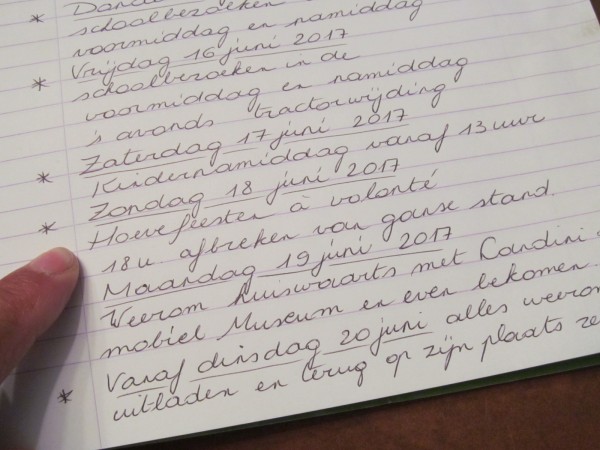 schoolbezoeken
voormiddag en namiddag
* Vrijdag 16 juni 2017
schoolbezoeken in de
voormiddag en namiddag
* 's avonds tractorwijding
Zaterdag 17 juni 2017
* Kindernamiddag vanaf 13 uur
Zondag 18 juni 2017
* Hoevefeesten à volonté
18 u. afbreken van ganse stand.
Maandag 19 juni 2017
Weerom huiswaarts met Landini
mobiel Museum en even bekomen.
Vanaf dinsdag 20 juni alles weerom
* uitladen en terug op zijn plaats